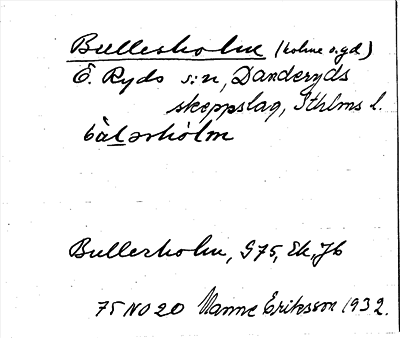 Bullersholm (holme o.gd)
Ö. Ryds s:n, Danderyds
skeppslag, Sthlms l.
bàlərshòlm
Bullerholm, G75, Ek, Jb
75 NO 20 Manne Eriksson 1932.